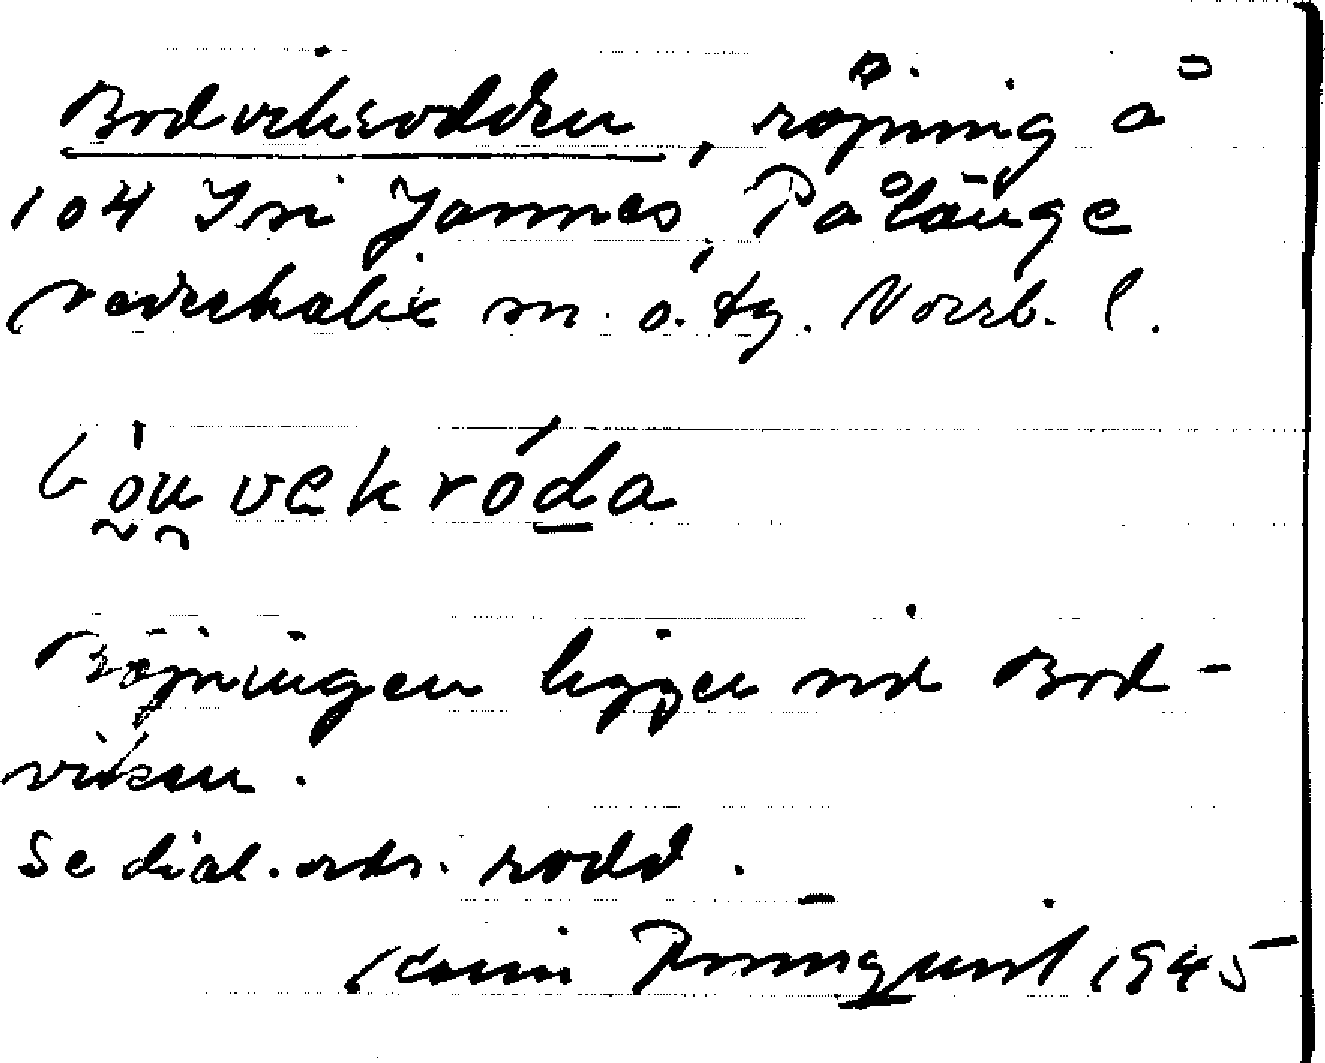 Bodvikrodden, röjning å
104 Jannes, Pålänge
Nederkalix sn. o. tg. Norrb. l.
vekróda
Röjningen ligger vid Bod-
viken.
Se dial. ordr. rodd.
1945